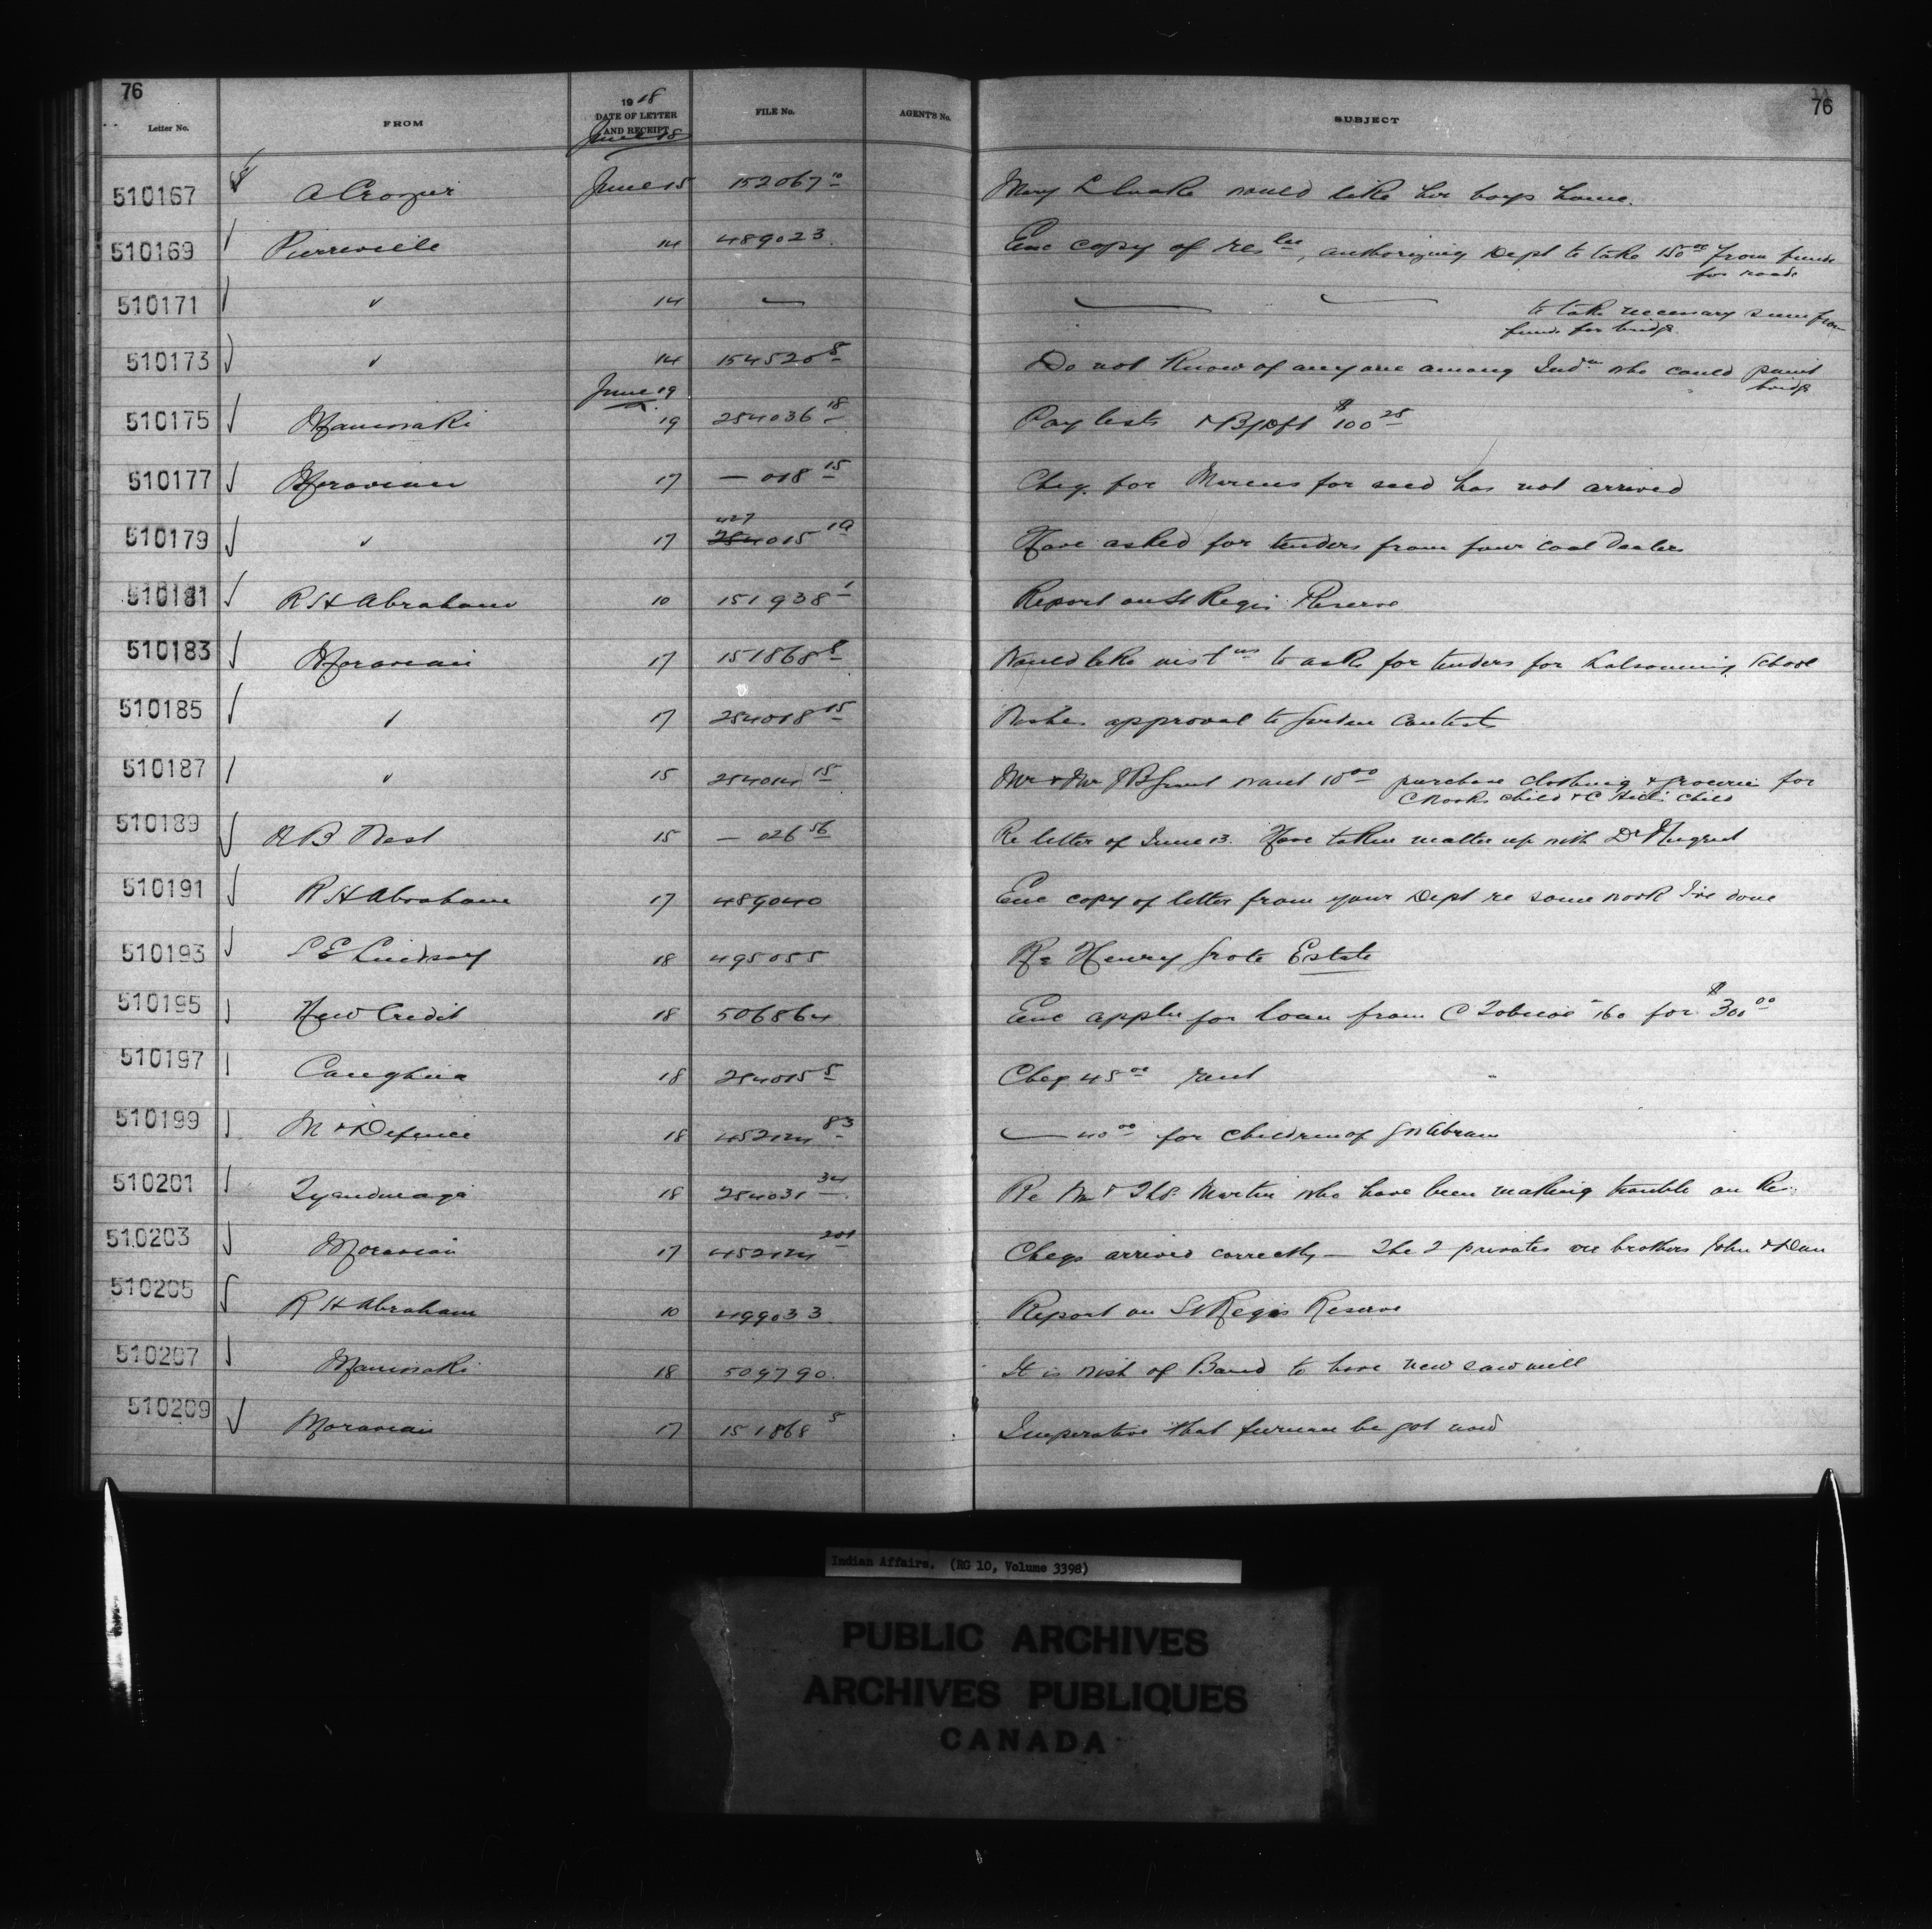 76
76
Letter No. FROM 1918 DATE OF LETTER AND RECEIPT FILE No. AGENT'S No. SUBJECT
June 18
510167 A Crozier June 15 152067 10 Mary L would like her boys home.
510169 Pierreville 14 489023. Enc copy of res, authorizing Dept to take 150 00 from funds
for roads
510171 " 14 — — — to take necessary sum from
funds for bridge
510173 " 14 154520 8 Do not know of anyone among Inds who could paint
bridge
June 19
510175 Maniwaki 19 254036 18 Pay lists & B/Dft $100 25
510177 Moravian 17 — 018 15 Cheq. for Marcus for seed has not arrived
427
510179 " 17 254015 1a Have asked for tenders from four coal dealers
510181 R H Abraham 10 151938 1 Report on St Regis Reserve
510183 Moravian 17 151868 5 Would like inst ns to ask for tenders for kalsomining school
510185 " 17 254018 15 Wishes approval to garden contests
510187 " 15 254014 15 Mr & Mr J B want 10 00 purchase clothing & groceries for
C child & C Hill's child
510189 A B West 15 — 026 56 Re letter of June 13. Have taken matter up with Dr
510191 R H Abraham 17 489040 Enc copy of letter from your Dept re some work I've done
510193 S E Lindsay 18 495055 Re Henry Grote Estate
510195 New Credit 18 506864 Enc appln for loan from C Tobicoe 160 for $300 00
510197 Caughna 18 254015 5 Cheq 45 00 rent
510199 M & Defence 18 452124 83 — 40 00 for children of Abram
510201 Tyendinaga 18 254031 34 Re Wm & Thos. Martin who have been making trouble on Res.
510203 Moravian 17 452124 201 Cheqs arrived correctly — The 2 privates are brothers John & Dan
510205 R H Abraham 10 499033. Report on St Regis Reserve
510207 Maniwaki 18 509790. It is wish of Band to have new sawmill
510209 Moravian 17 151868 5 Imperative that furnace be got now
Indian Affairs. (RG 10, Volume 3398)
PUBLIC ARCHIVES
ARCHIVES PUBLIQUES
CANADA